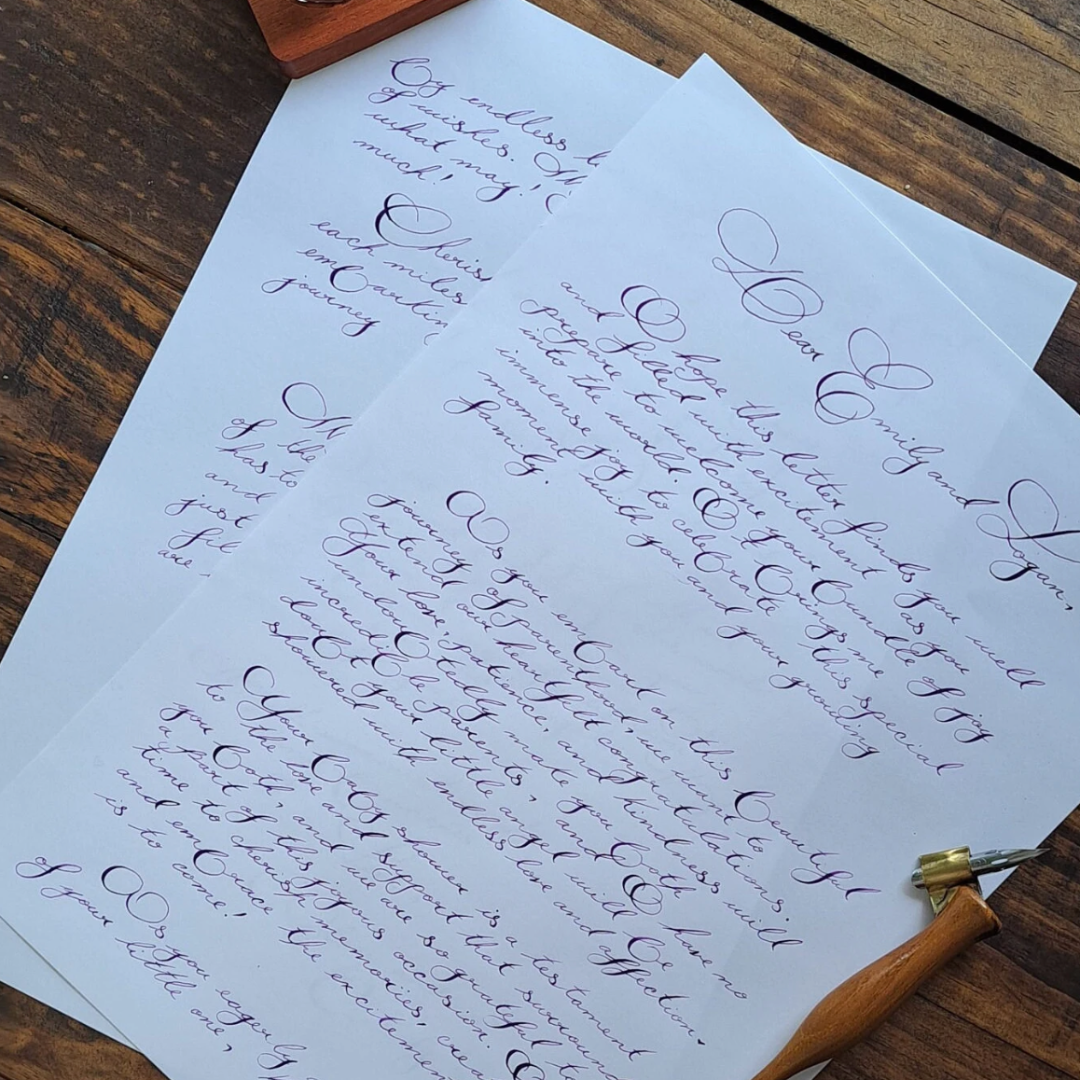 Of endless
of wishes.
what may!
much!
Cheris
each miles
embarkin
journey
of the
has to
and
just
fil
are
Dear Emily and Logan,
I hope this letter finds you well
and filled with excitement as you
prepare to welcome your bundle of joy
into the world. It brings me
immense joy to celebrate this special
moment with you and your growing
family.
As you embark on this beautful
journey of parenthood, we want to
extend our heartfelt congratulations.
Your love, patience, and kindness will
undoubtedly make you both
incredible parents, and I have no
doubt your little angel will be
showered with endless love and affection.
Your baby shower is a testament
to the love and support that surround
you both, and we are so grateful to
a part of this joyous occasion.
time to cherish memories, crea
and embrace the excitemen
is to come!
As you eagerly
of your little one,